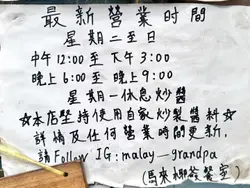 最新營業時間
星期二至日
中午12:00至下午3:00
晚上6:00至晚上9:00
星期一休息炒醬
☆本店堅持使用自家炒製醬料☆
詳情及任何營業時間更新,
請Follow IG: malay_grandpa
(馬來椰爺餐室)